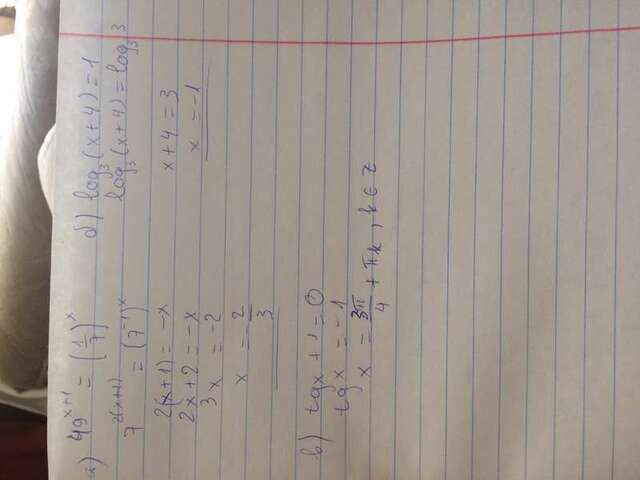 а) 49^(x+1) = (1/7)^x
7^(2(x+1)) = (7^(-1))^x
2(x+1) = -x
2x+2 = -x
3x = -2
x = -2/3
б) log₃(x+4) = 1
log₃(x+4) = log₃3
x+4 = 3
x = -1
в) tgx + 1 = 0
tgx = -1
x = 3π/4 + πk, k ∈ Z